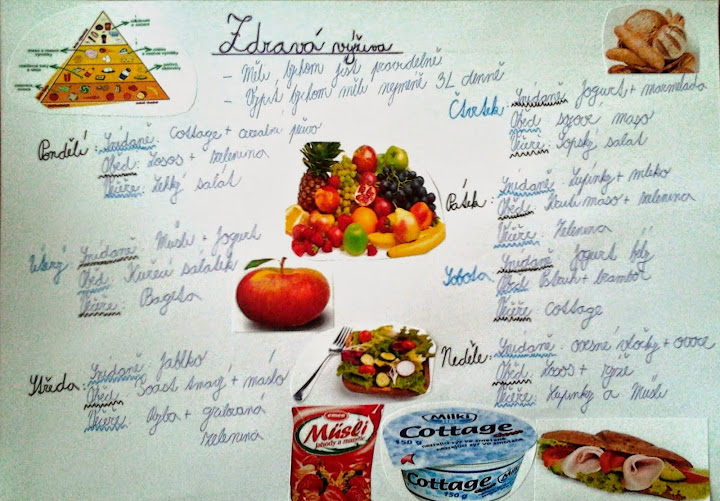 Zdravá výživa
- Měli bychom jíst pravidelně
- Vypít bychom měli nejméně 3L denně
Pondělí: Snídaně: Cottage + cereální
Oběd: Losos + zelenina
Večeře: Lehký salát
Úterý Snídaně: Musli + Jogurt
Oběd: Kuřecí salátek
Večeře: Bageta
Středa: Snídaně: Jablko
Oběd: + máslo
Večeře: Ryba + grilovaná
zelenina
Čtvrtek: Snídaně: Jogurt + marmeláda
Oběd: maso
Večeře: Šopský salat
Pátek: Snídaně: Lupínky + mléko
Oběd: maso + zelenina
Večeře: Zelenina
Sobota: Snídaně: Jogurt bílý
Oběd: Pstruh + brambor
Večeře: Cottage
Neděle: Snídaně: ovesné vločky + ovoce
Oběd: Losos + rýže
Večeře: Lupínky a Müsli
emco
Müsli
jahody a mandle
Milki
Cottage
150 g
Cottage
150 g